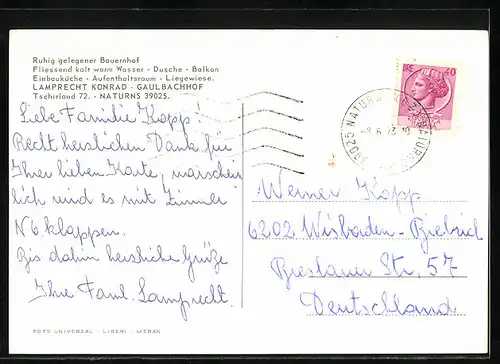 Ruhig gelegener Bauernhof
Fliessend kalt warm Wasser - Dusche - Balkon
Einbauküche - Aufenthaltsraum - Liegewiese.
LAMPRECHT KONRAD - GAULBACHHOF
Tschirland 72. - NATURNS 39025.
Liebe Familie Kopp!
Recht herzlichen Dank für
Ihre lieben Karte, warschein
lich wird es mit Zimmer
N 6. klappen.
Bis dahin herzliche Grüße
Ihre Faml. Lamprecht.
FOTO UNIVERSAL - LIBERI - MERAN
39025 NATURNO
-8.6.73.10
Werner Kopp
6202 Wisbaden-Biebrich
Breslauer Str. 57
Deutschland